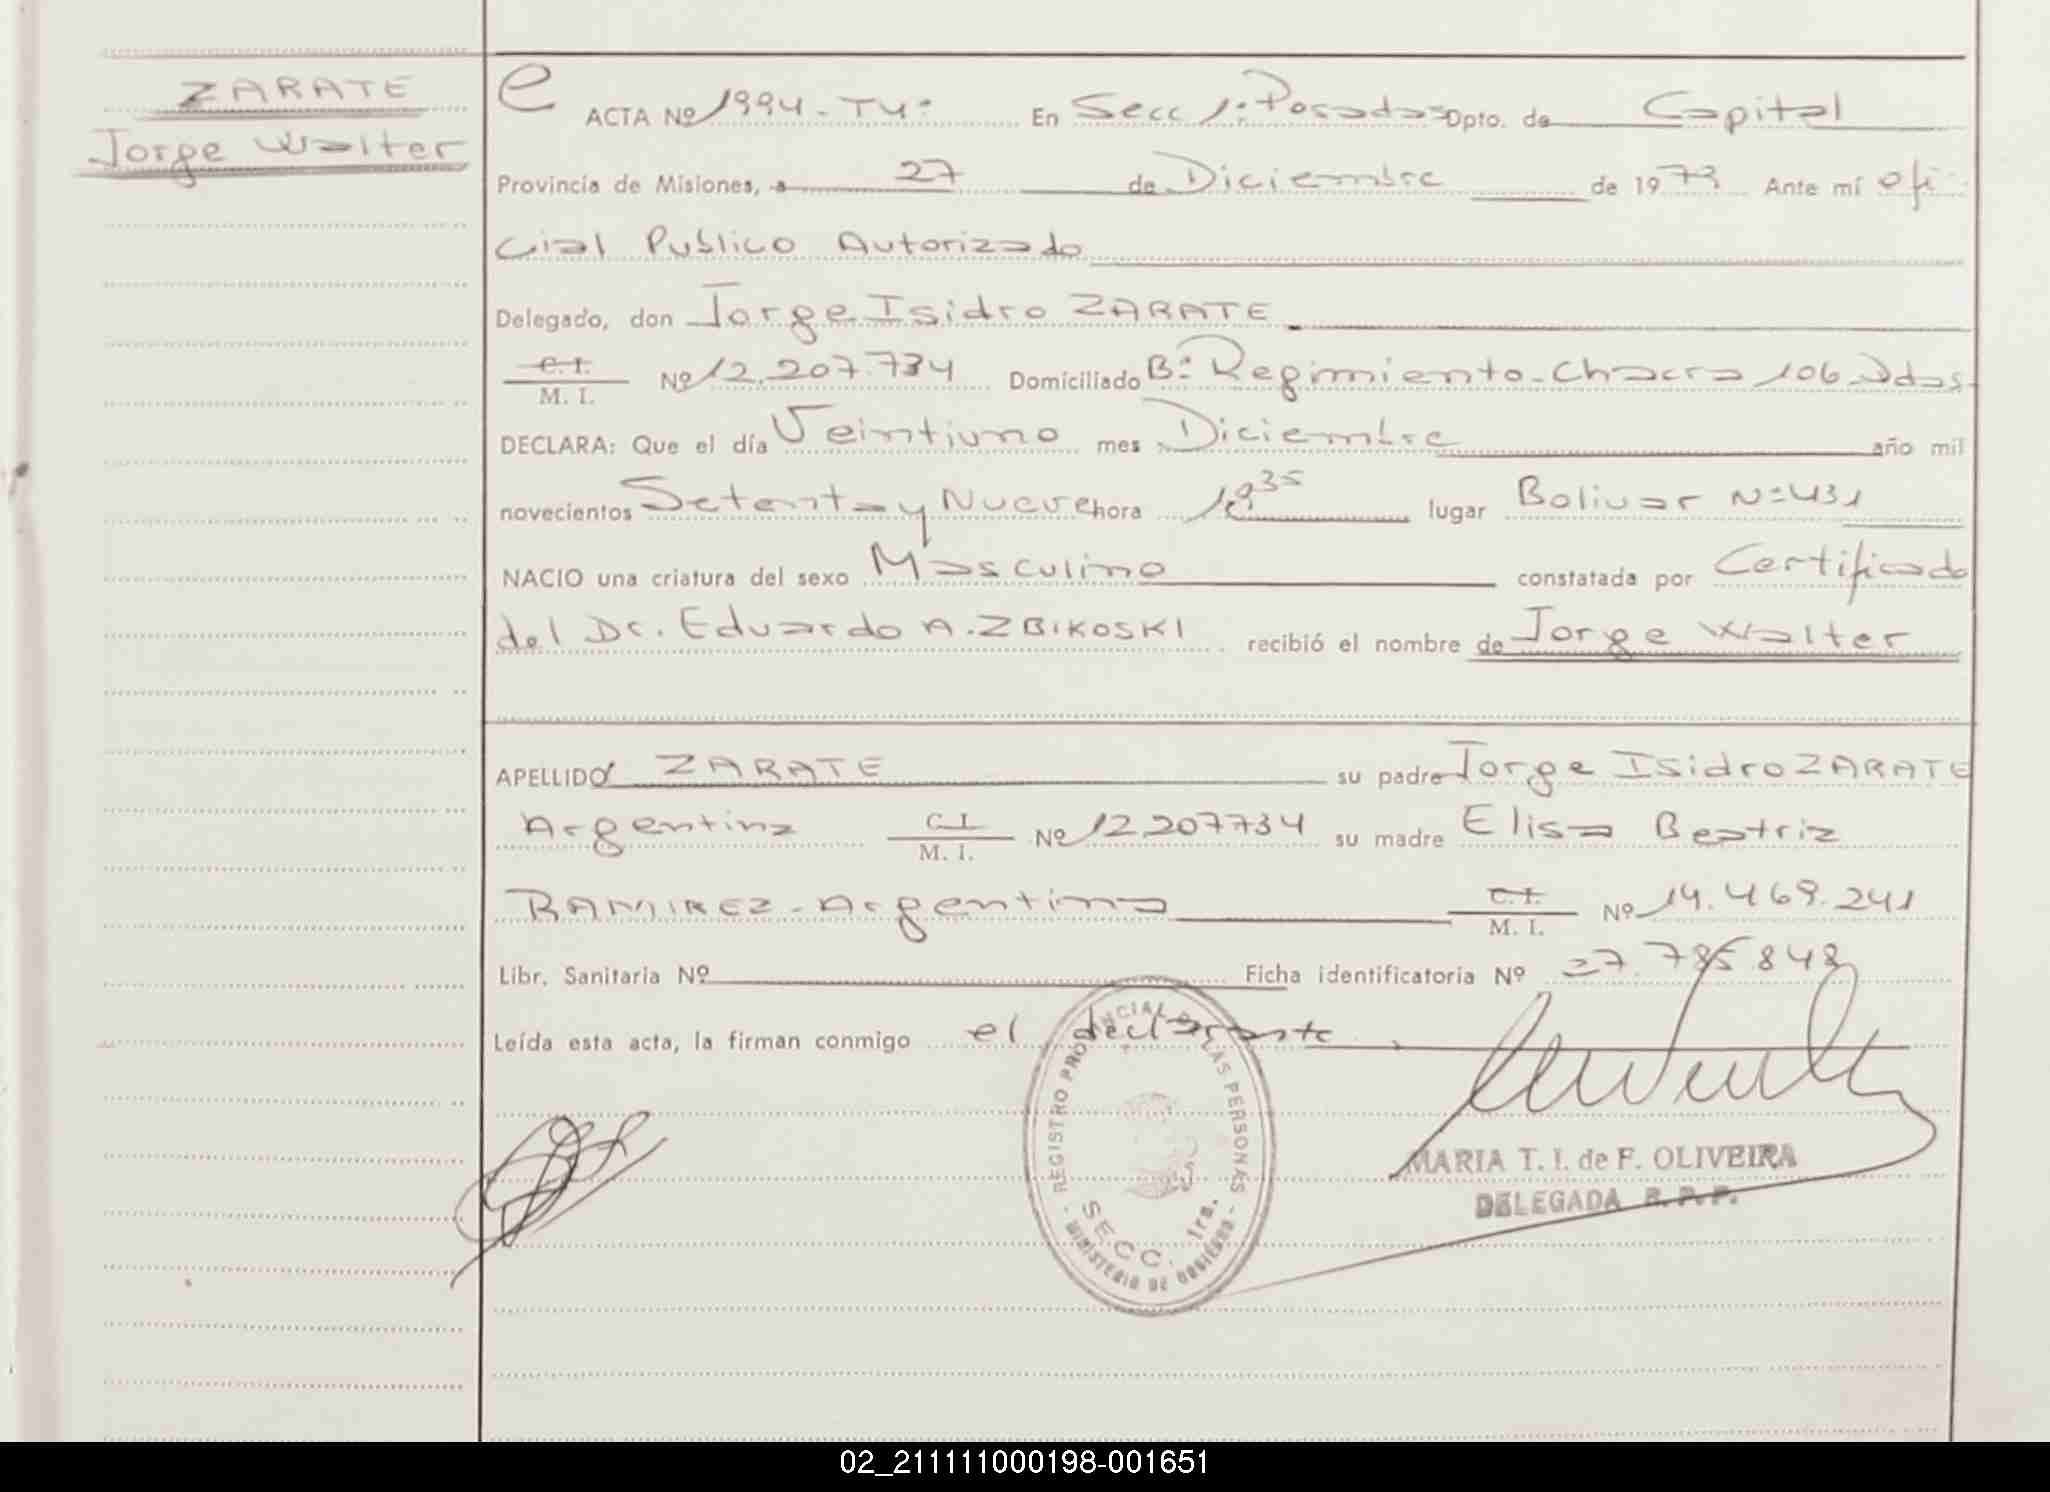 ZARATE
Jorge Walter
e ACTA Nº 1994-T4º En Secc 1ª Posadas Dpto. de Capital
Provincia de Misiones, a 27 de Diciembre de 1979 Ante mí ofi-
cial Publico Autorizado
Delegado, don Jorge Isidro ZARATE
C. I.
M. I. Nº 12.207.734 Domiciliado Bº Regimiento-Chacra 106-Pdas-
DECLARA: Que el día Veintiuno mes Diciembre año mil
novecientos Setenta y Nueve hora 18 35 lugar Bolivar Nº 431
NACIO una criatura del sexo Masculino constatada por Certificado
del Dr. Eduardo A. ZBIKOSKI recibió el nombre de Jorge Walter
APELLIDO ZARATE su padre Jorge Isidro ZARATE
Argentina C. I.
M. I. Nº 12.207734 su madre Elisa Beatriz
RAMIREZ-Argentina C. I.
M. I. Nº 14.469.241
Libr. Sanitaria Nº Ficha identificatoria Nº 27.785.848
Leída esta acta, la firman conmigo el declarante
REGISTRO PROVINCIAL DE LAS PERSONAS
SECC. 1ra.
MINISTERIO DE GOBIERNO
MARIA T. I. de F. OLIVEIRA
DELEGADA R. P. P.
02_211111000198-001651